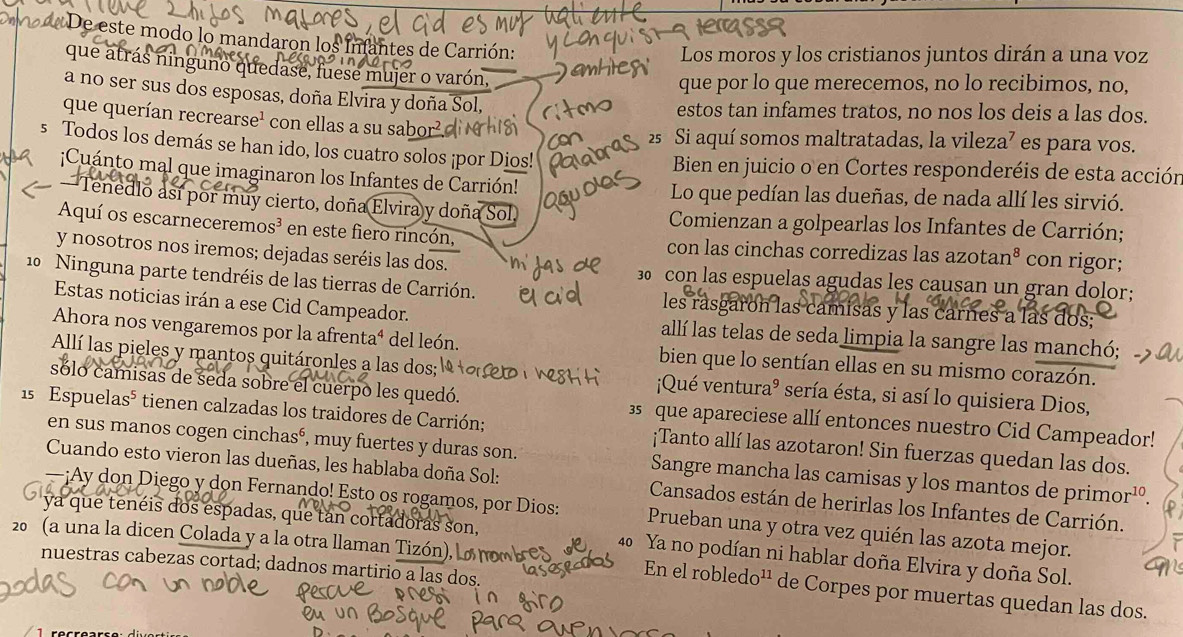 2 hijos maTores, el cid es muy valiente
y conquista terrassa
De este modo lo mandaron los Infantes de Carrión:
que atrás ninguno quedase, fuese mujer o varón,
a no ser sus dos esposas, doña Elvira y doña Sol,
que querían recrearse¹ con ellas a su sabor².
5 Todos los demás se han ido, los cuatro solos ¡por Dios!
¡Cuánto mal que imaginaron los Infantes de Carrión!
—Tenedlo así por muy cierto, doña Elvira y doña Sol.
Aquí os escarneceremos³ en este fiero rincón,
y nosotros nos iremos; dejadas seréis las dos.
10 Ninguna parte tendréis de las tierras de Carrión.
Estas noticias irán a ese Cid Campeador.
Ahora nos vengaremos por la afrenta⁴ del león.
Allí las pieles y mantos quitáronles a las dos;
sólo camisas de seda sobre el cuerpo les quedó.
15 Espuelas⁵ tienen calzadas los traidores de Carrión;
en sus manos cogen cinchas⁶, muy fuertes y duras son.
Cuando esto vieron las dueñas, les hablaba doña Sol:
—¡Ay don Diego y don Fernando! Esto os rogamos, por Dios:
ya que tenéis dos espadas, que tan cortadoras son,
20 (a una la dicen Colada y a la otra llaman Tizón),
nuestras cabezas cortad; dadnos martirio a las dos.
ritmo
con
palabras
agudas
hijas de
el cid
Los nombres de
las espadas
con un noble
en un Bosque para
Los moros y los cristianos juntos dirán a una voz
que por lo que merecemos, no lo recibimos, no,
estos tan infames tratos, no nos los deis a las dos.
25 Si aquí somos maltratadas, la vileza⁷ es para vos.
Bien en juicio o en Cortes responderéis de esta acción
Lo que pedían las dueñas, de nada allí les sirvió.
Comienzan a golpearlas los Infantes de Carrión;
con las cinchas corredizas las azotan⁸ con rigor;
30 con las espuelas agudas les causan un gran dolor;
les rasgaron las camisas y las carnes a las dos;
allí las telas de seda limpia la sangre las manchó;
bien que lo sentían ellas en su mismo corazón.
¡Qué ventura⁹ sería ésta, si así lo quisiera Dios,
35 que apareciese allí entonces nuestro Cid Campeador!
¡Tanto allí las azotaron! Sin fuerzas quedan las dos.
Sangre mancha las camisas y los mantos de primor¹⁰.
Cansados están de herirlas los Infantes de Carrión.
Prueban una y otra vez quién las azota mejor.
40 Ya no podían ni hablar doña Elvira y doña Sol.
En el robledo¹¹ de Corpes por muertas quedan las dos.